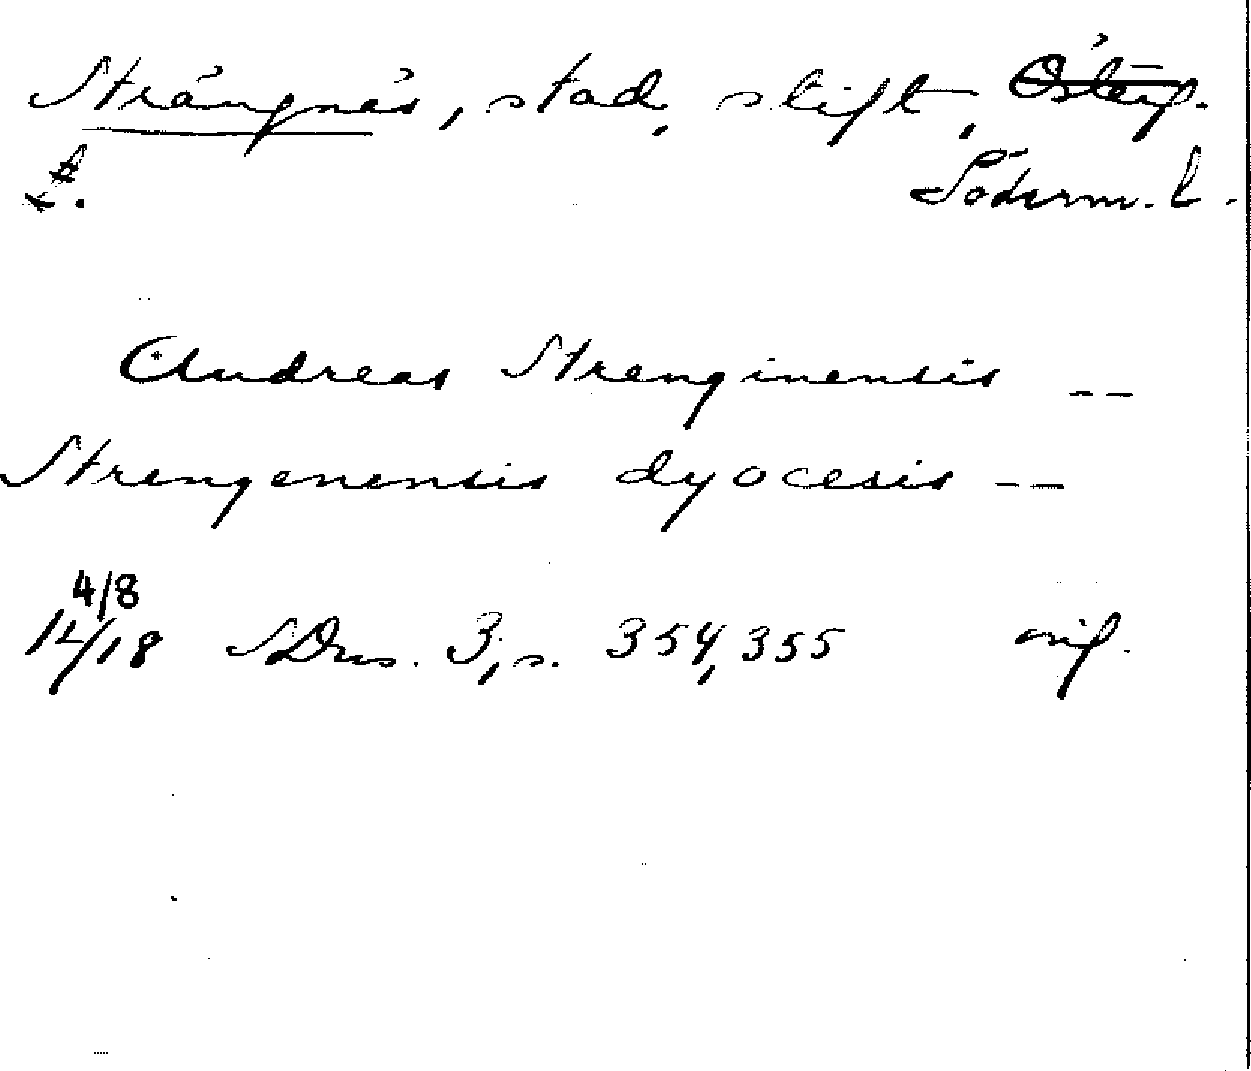 Strängnäs, stad, stift, Österg.
t. Söderm. l.
Andreas Strenginensis --
Strengenensis dyocesis --
4/8
14/18 SDns. 3, s. 354, 355 orig.